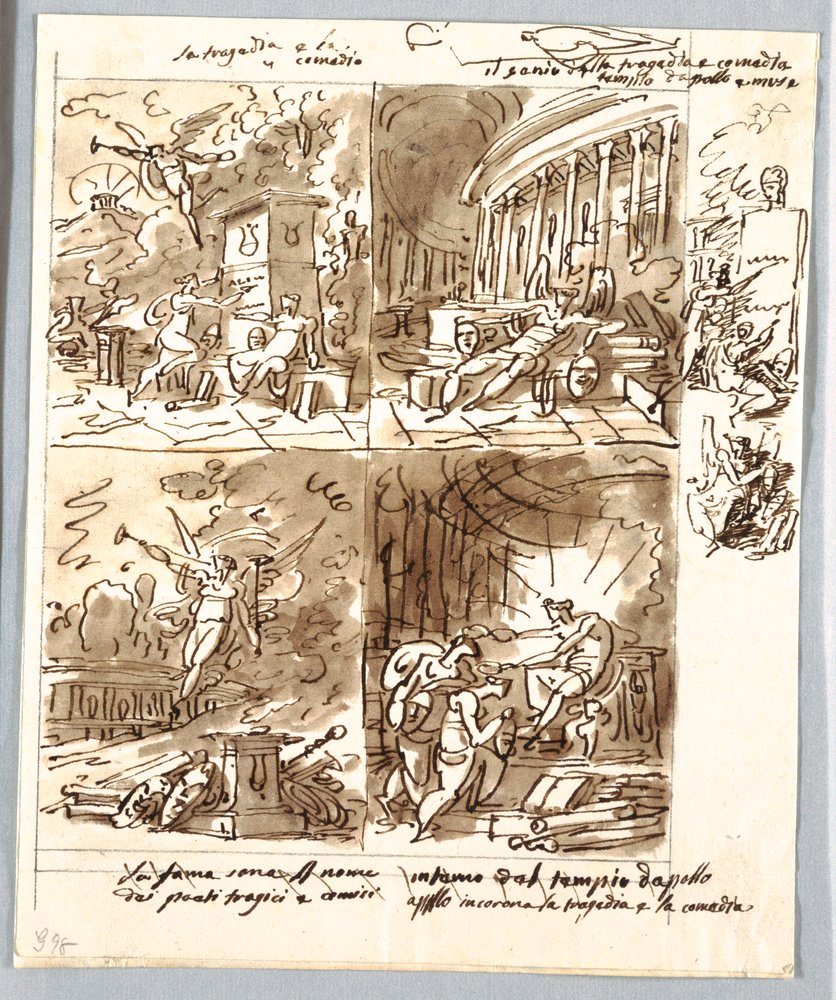 la tragedia e la
comedia
il genio della tragedia e comedia
tempio dapollo e muse
La fama sona Il nome
dei poeti tragici e comici
interno del tempio dapollo
apollo incorona la tragedia e la comedia